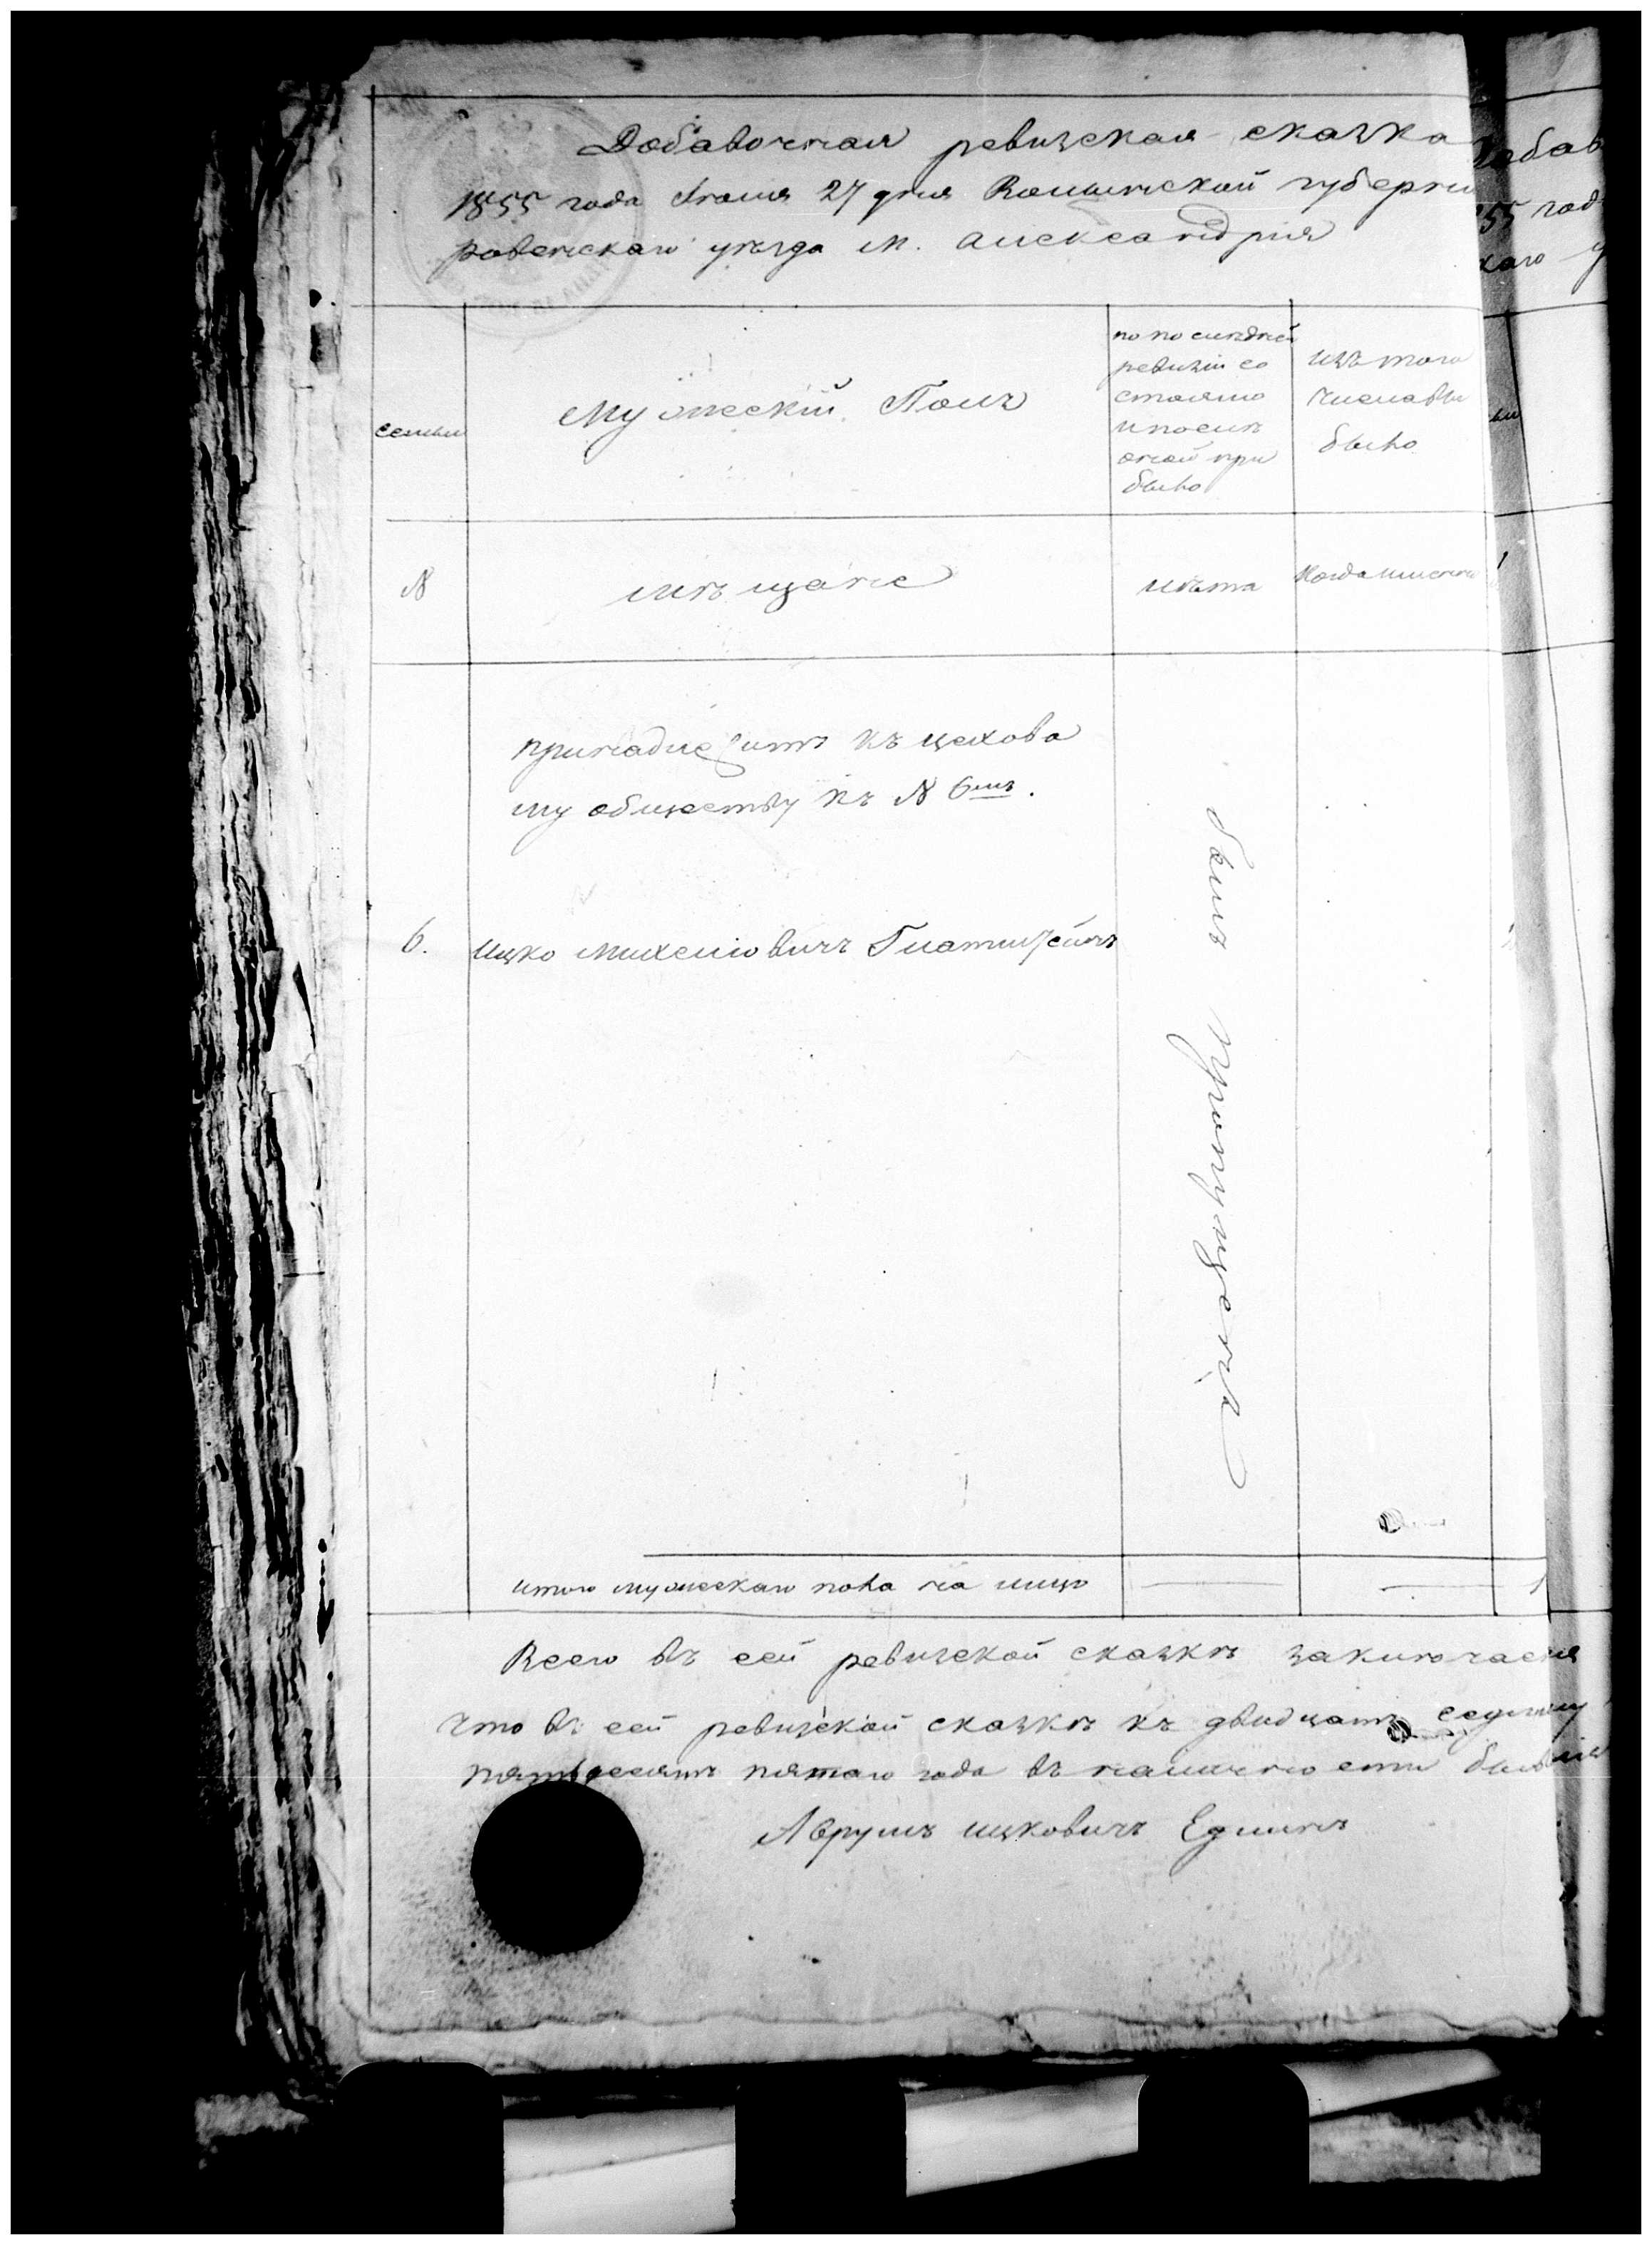 Добавочная ревизская сказка
1855 года Іюля 27 дня Волынской губерніи
ровенскаго уѣзда м. александрія
семьи
Мужескій Полъ
по последней
ревизіи со
стояло
и послѣ
оной при
было
изъ того
числа вы
было
№
мѣщане
лѣта
Когда имянно
принадлежитъ къ цехово
му обществу къ № 6мъ.
6.
ицко михелювичъ Глатштейнъ
лѣтъ
итого мужескаго пола на лицо
1
Всего въ сей ревизской сказкѣ заключается
что въ сей ревизской сказкѣ къ двадцать седьмому
пятьдесятъ пятаго года въ наличности бывшія
Аврумъ ицковичъ